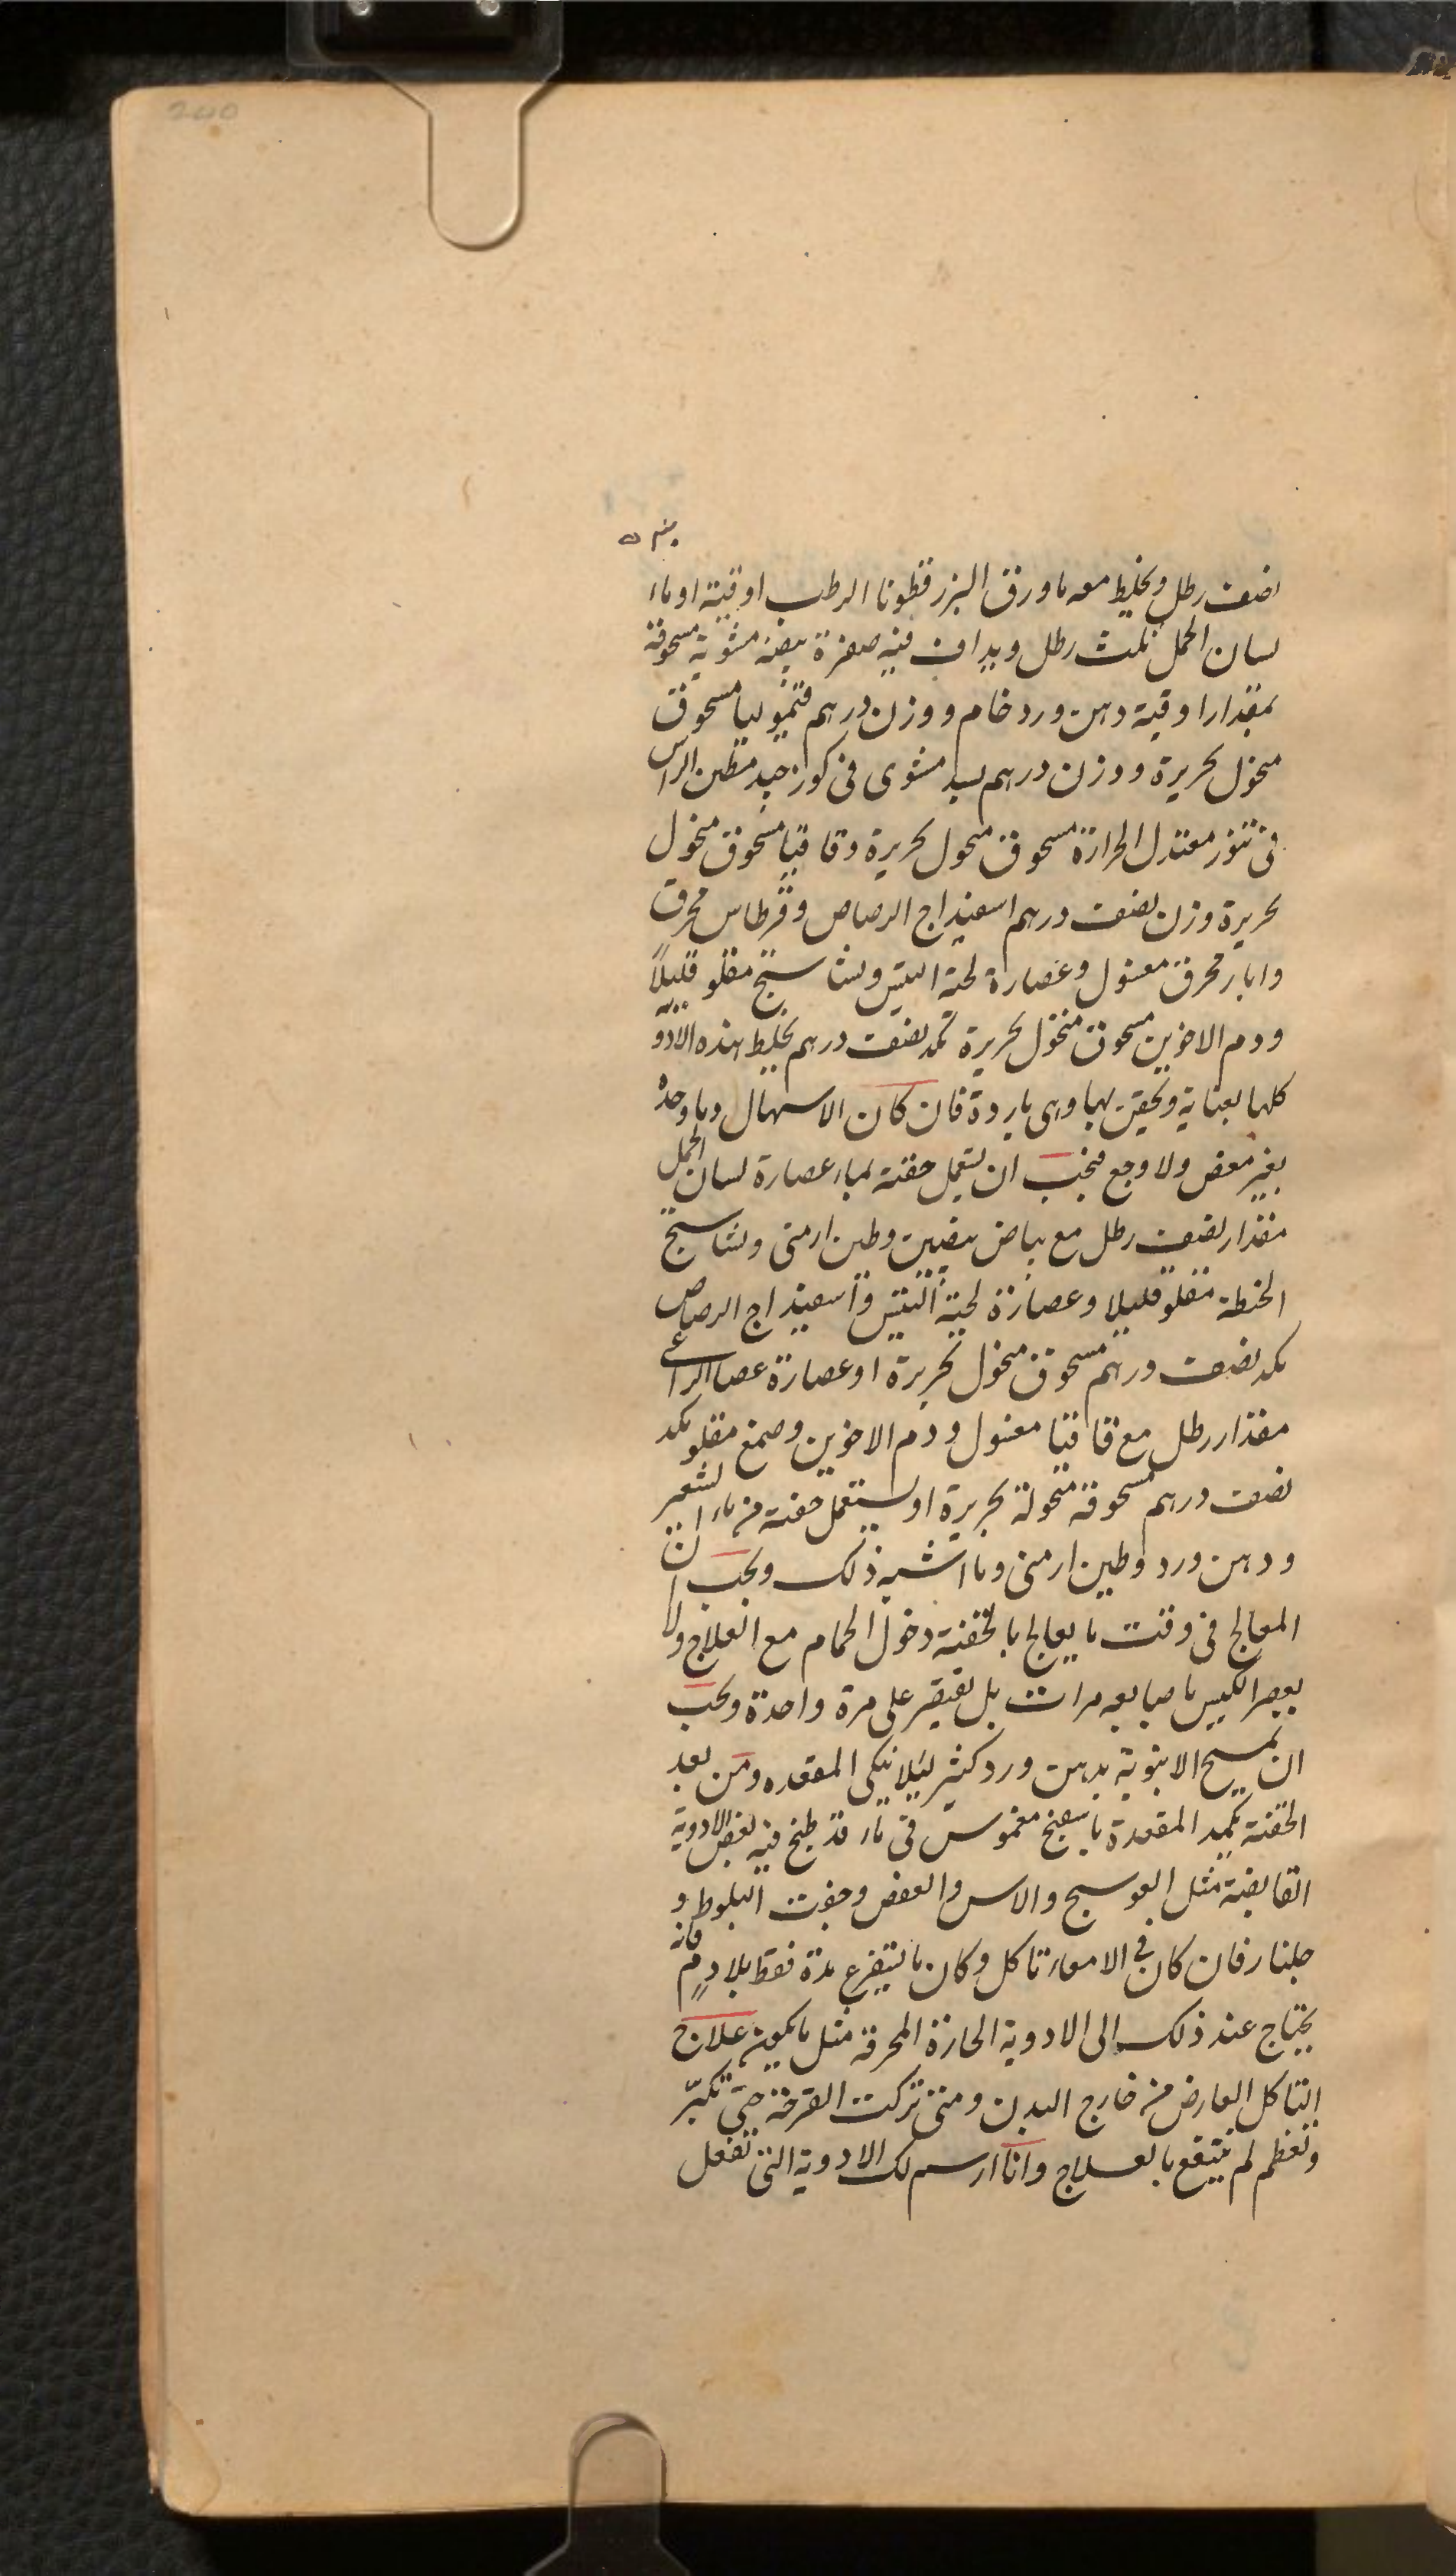 نصف رطل ويخلط معه ماء ورق البزرقطونا الرطب اوقية او ماء
لسان الحمل ثلث رطل ويداف فيه صفرة بيضة مشوية مسحوقة
بمقدار اوقية دهن ورد خام ووزن درهم قيموليا مسحوق
منخول بحريرة ووزن درهم بسد مشوى فى كوز جيد مطين الراس
فى تنور معتدل الحرارة مسحوق منخول بحريرة وقاقيا مسحوق منخول
بحريرة وزن نصف درهم اسفيداج الرصاص وقرطاس محرق
وابار محرق مغسول وعصارة لحية التيس ونشاستج مقلو قليلاً
ودم الاخوين مسحوق منخول بحريرة بكد نصف درهم يخلط هذه الادوية
كلها بعناية ويحقن بها وهى باردة فان كان الاسهال دما وحده
بغير مغص ولا وجع فيجب ان يستعمل حقنة بماء عصارة لسان الحمل
مقدار نصف رطل مع بياض بيضتين وطين ارمنى ونشاستج
الحنطة مقلو قليلا وعصارة لحية التيس واسفيداج الرصاص
بكد نصف درهم مسحوق منخول بحريرة او عصارة عصا الراعى
مقدار رطل مع قاقيا مغسول ودم الاخوين وصمغ مقلو بكد
نصف درهم مسحوقة منخولة بحريرة او يستعمل حقنة من ماء الشعير
ودهن ورد وطين ارمنى وما اشبه ذلك ويجب ان لا
المعالج فى وقت ما يعالج بالحقنة دخول الحمام مع العلاج ولا
يعصر الكيس باصابعه مرات بل يقتصر على مرة واحدة ويجب
ان يمسح الانبوبة بدهن ورد كثير لئلا ينكى المقعده ومن بعد
الحقنة يكمد المقعدة باسفنج مغموس فى ماء قد طبخ فيه بعض الادوية
القابضة مثل العوسج والاس والعفص وجفت البلوط و
جلنار فان كان فى الامعاء تاكل وكان ما يستفرغ مدة فقط بلا دم فانه
يحتاج عند ذلك الى الادوية الحارة المحرقة مثل ما يكون علاج
التاكل العارض من خارج البدن ومتى تركت القرحة حتى تكبّر
وتعظم لم ينتفع بالعلاج وانا ارسم لك الادوية التى تفعل